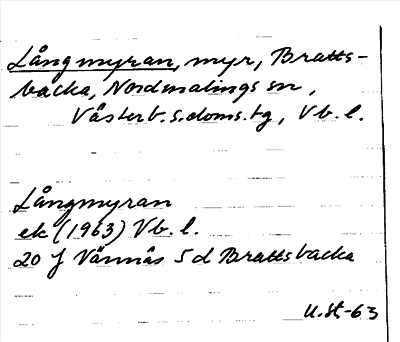 Långmyran, myr, Bratts-
backa, Nordmalings sn,
Västerb. s. doms. tg, Vb. l.
Långmyran
ek (1963) Vb. l.
20 J Vännäs 5 d Brattsbacka
U.St-63